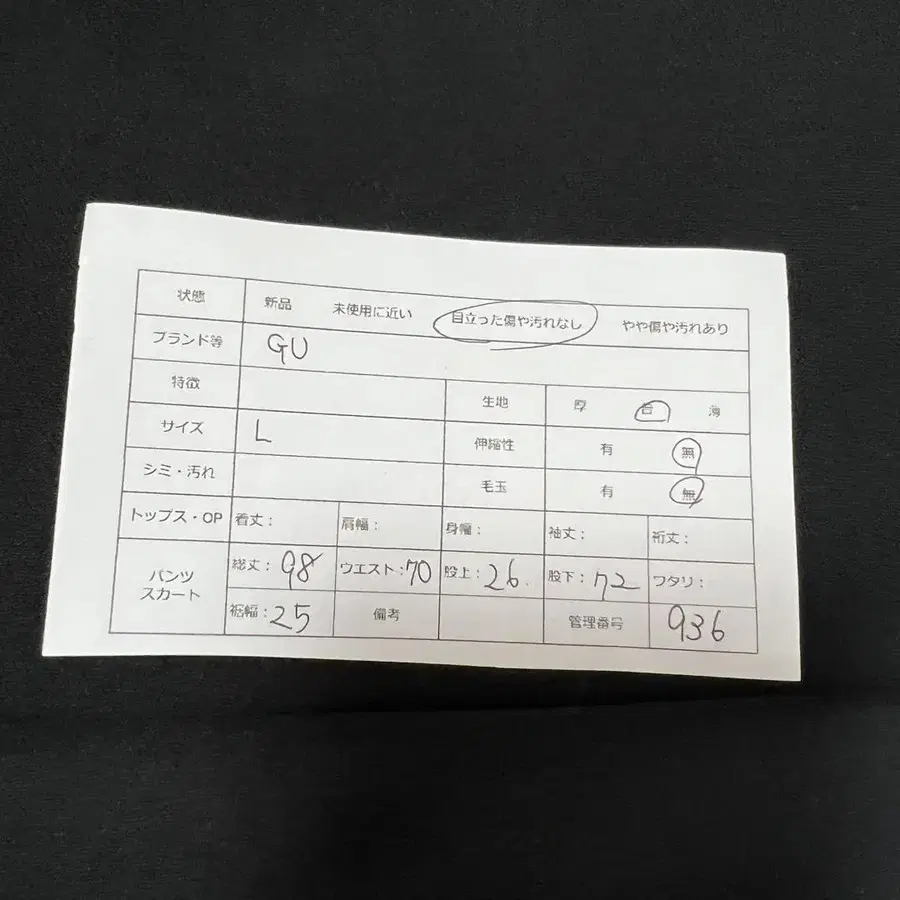 状態 新品 未使用に近い 目立った傷や汚れなし やや傷や汚れあり
ブランド等 GU
特徴 生地 厚 普 薄
サイズ L 伸縮性 有 無
シミ・汚れ 毛玉 有 無
トップス・OP 着丈: 肩幅: 身幅: 袖丈: 裄丈:
パンツ スカート 総丈:98 ウエスト:70 股上:26 股下:72 ワタリ:
裾幅:25 備考 管理番号 936